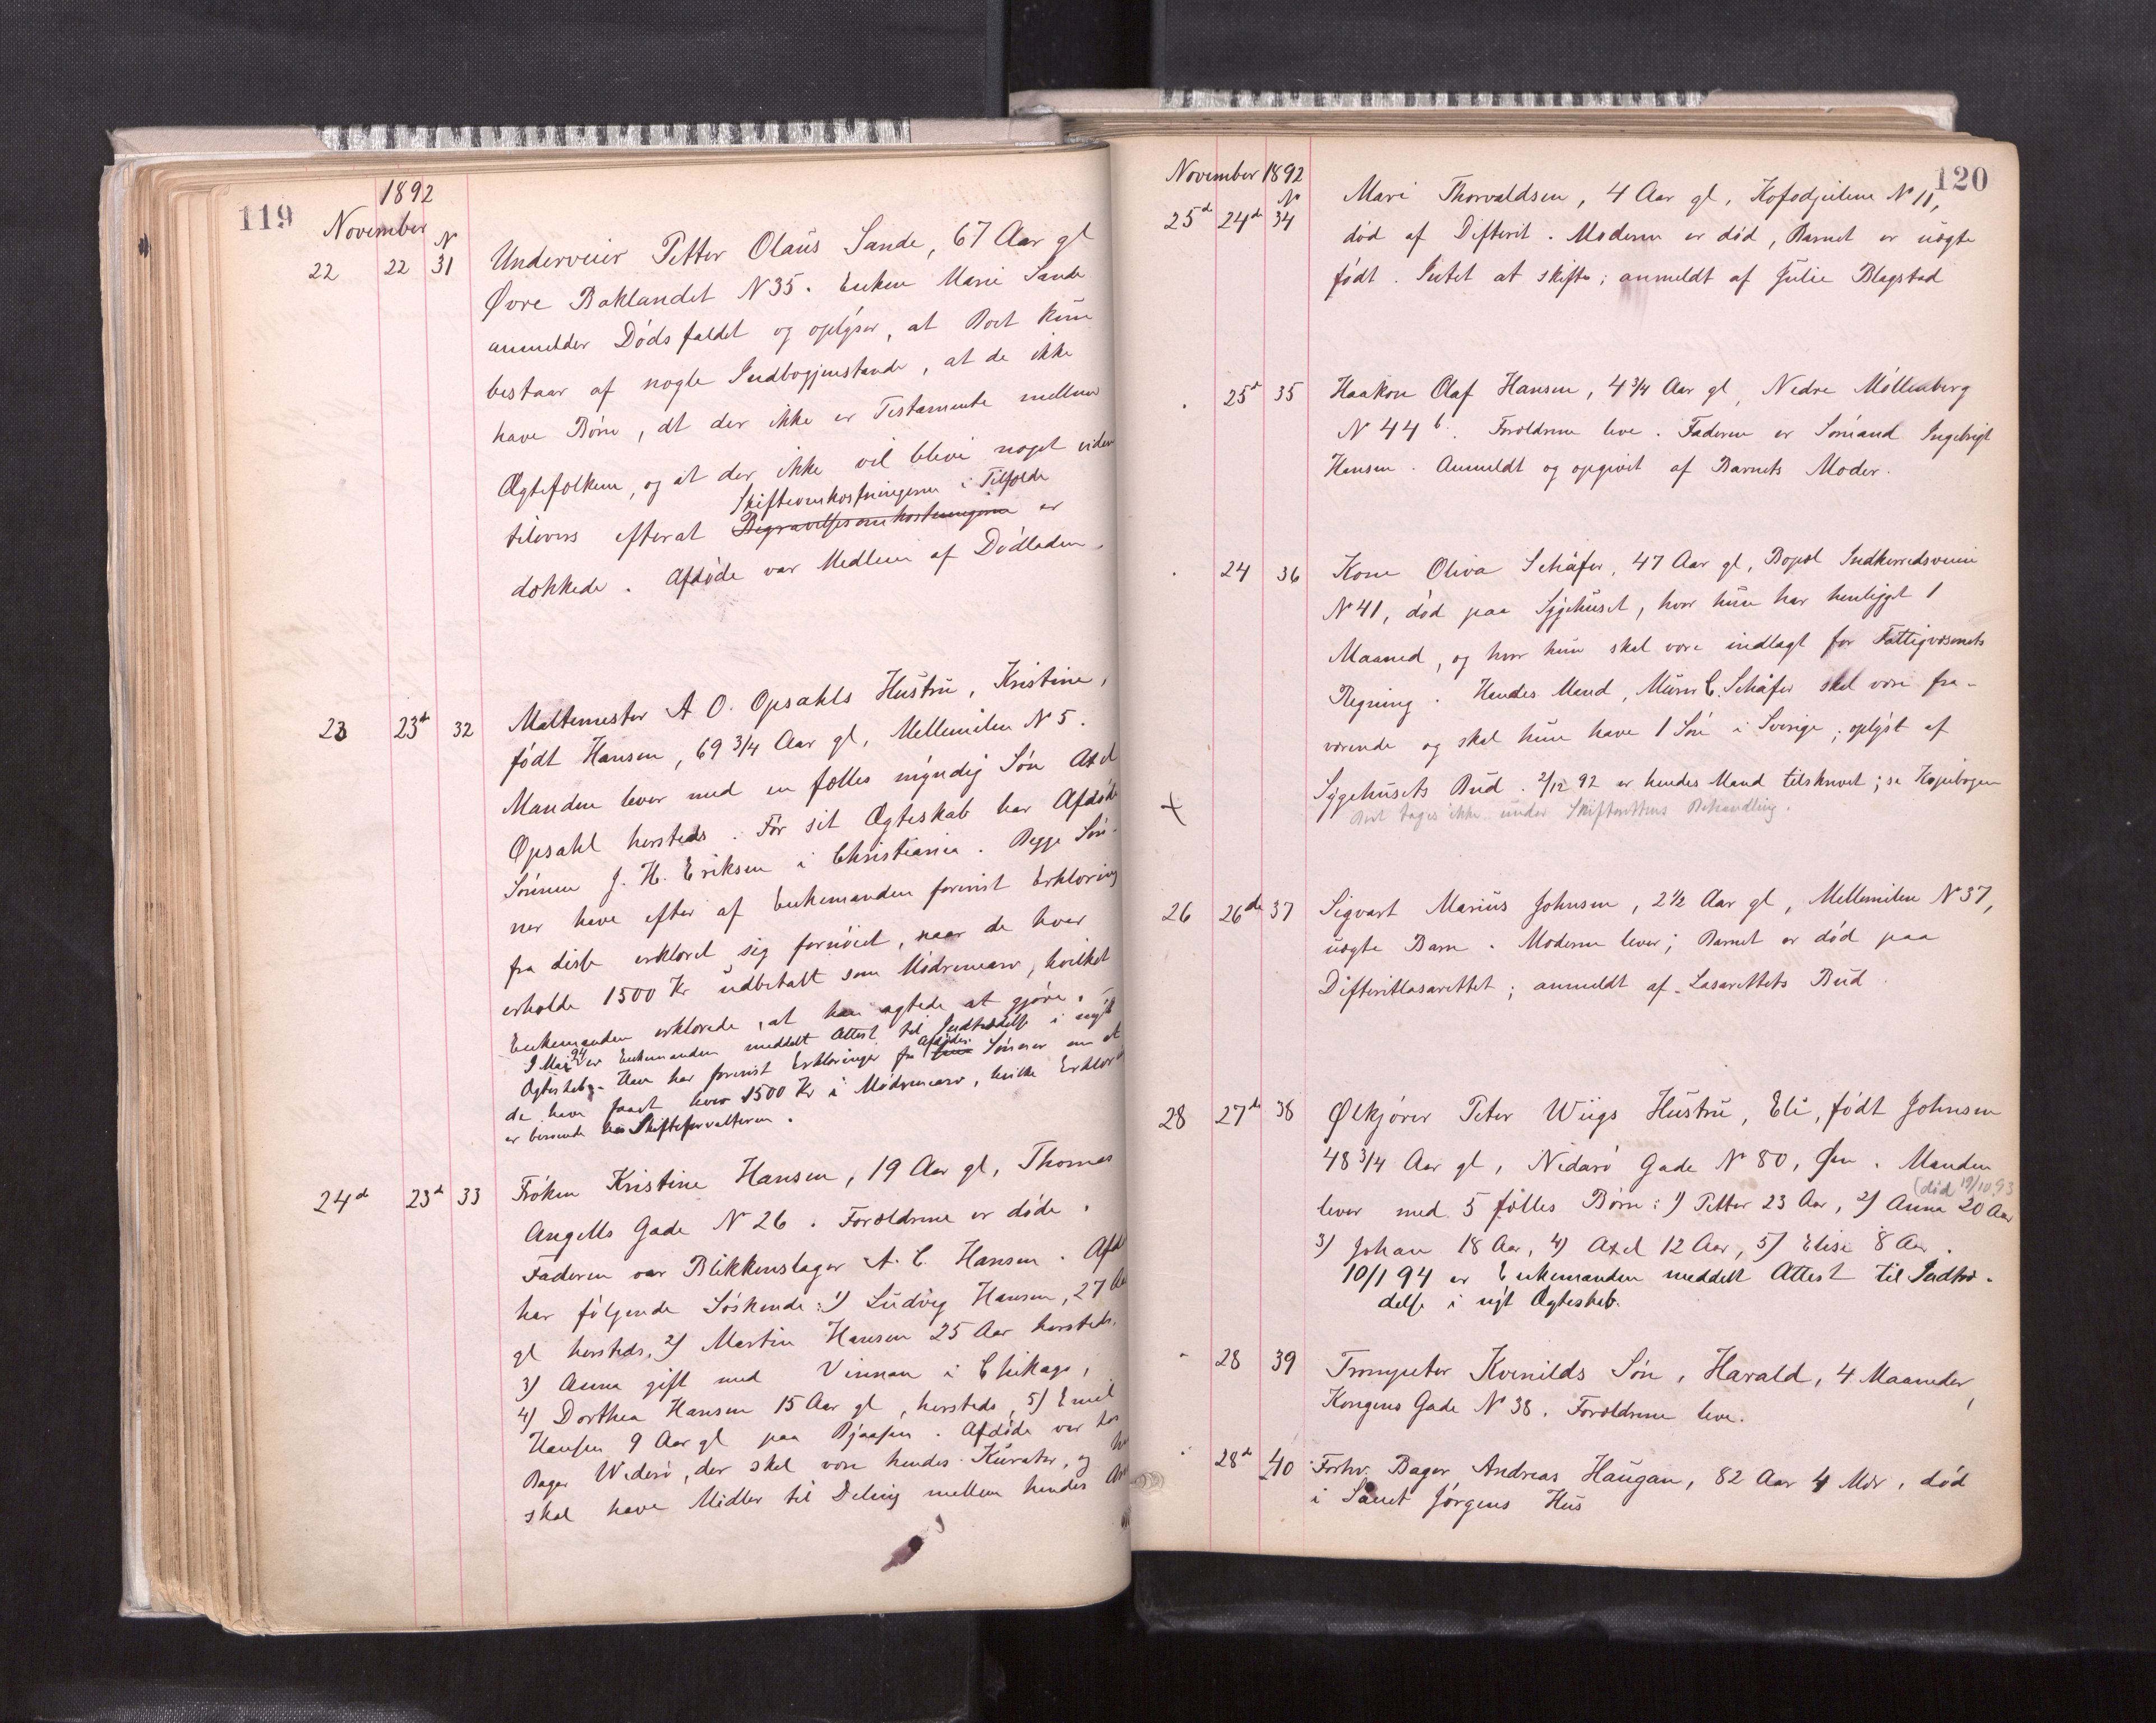 119
1892
November
N
22 22 31 Underveier Petter Olaus Sande, 67 Aar gl
Øvre Baklandet N 35. Enken Marie Sande
anmelder Dødsfaldet og oplyser, at Boet kun
bestaar af nogle Indbogjenstande, at de ikke
have Børn, at der ikke er Testamente mellem
Ægtefolkene, og at der ikke vil blive noget videre
Skifteomkostningerne i Tilfælde
tilovers efterat Begravelsesomkostningerne er
dækkede. Afdøde var Medlem af Dødladen.
23 23de 32 Maltemester A. O. Opsahls Hustru, Kristine,
født Hansen, 69 3/4 Aar gl, Mellemilen N 5.
Manden lever med en fælles myndig Søn Axel
Opsahl hersteds. Før sit Ægteskab har Afdøde
Sønnen J. H. Eriksen i Christiania. Begge Søn-
ner have efter af Enkemanden forevist Erklæring
fra disse erklæret sig fornøiet, naar de hver
erholde 1500 Kr udbetalt som Mødrenearv, hvilket
Enkemanden erklærede, at han agtede at gjøre. -
I Mai 94 er Enkemanden meddelt Attest til Indtrædelse i nyt
Ægteskab. Han har forevist Erklæringer fra sine Afdødes Sønner om at
de have faaet hver 1500 Kr i Mødrenearv, hvilke Erklæringer
er beroende hos Skifteforvalteren.
24de 23de 33 Frøken Kristine Hansen, 19 Aar gl, Thomas
Angells Gade N 26. Forældrene er døde.
Faderen var Blikkenslager A. C. Hansen. Afdøde
har følgende Søskende: 1) Ludvig Hansen, 27 Aar
gl hersteds. 2) Martin Hansen 25 Aar hersteds.
3) Anna gift med Vinnan i Chikago,
4) Dorthea Hansen 15 Aar gl, hersteds, 5) Emil
Hansen 9 Aar gl paa Bjaasen. Afdøde var hos
Bager Widerø, der skal være hendes Kurator, og
skal have Midler til Deling mellem hendes
120
November 1892
N
25de 24de 34 Mari Thorvaldsen, 4 Aar gl, Kofodgeilene N 11,
død af Difterit. Moderen er død, Barnet er uægte
født. Intet at skifte; anmeldt af Julie Blagstad
" 25de 35 Haakon Olaf Hansen, 4 3/4 Aar gl, Nedre Møllenberg
N 44 b. Forældrene leve. Faderen er Sømand Ingebrigt
Hansen. Anmeldt og opgivet af Barnets Moder.
" 24 36 Kone Oliva Schäfer, 47 Aar gl, Bopæl Indherredsveien
N 41, død paa Sygehuset, hvor hun har henligget 1
Maaned, og hvor hun skal være indlagt for Fattigvæsenets
Regning. Hendes Mand, Murer C. Schäfer skal være fra-
værende og skal hun have 1 Søn i Sverige; oplyst af
Sygehusets Bud. 2/12 92 er hendes Mand tilskrevet; se Kopibogen
+
Boet tages ikke under Skifterettens Behandling.
26 26de 37 Sigvart Marius Johnsen, 2 1/2 Aar gl, Mellemilen N 37,
uægte Barn. Moderen lever; Barnet er død paa
Difteritlasarettet; anmeldt af Lasarettets Bud.
28 27de 38 Ølkjører Peter Wiigs Hustru, Eli, født Johnsen
48 3/4 Aar gl, Nidarø Gade N 80, Øen. Manden
(død 19/10 93
lever med 5 fælles Børn: 1) Petter 23 Aar, 2) Anna 20 Aar
3) Johan 18 Aar, 4) Axel 12 Aar, 5) Elise 8 Aar.
10/1 94 er Enkemanden meddelt Attest til Indtræ-
delse i nyt Ægteskab.
" 28 39 Trompeter Kvenilds Søn, Harald, 4 Maaneder,
Kongens Gade N 38. Forældrene leve.
" 28de 40 Forhv. Bager Andreas Haugan, 82 Aar 4 Mdr, død
i Sanct Jørgens Hus